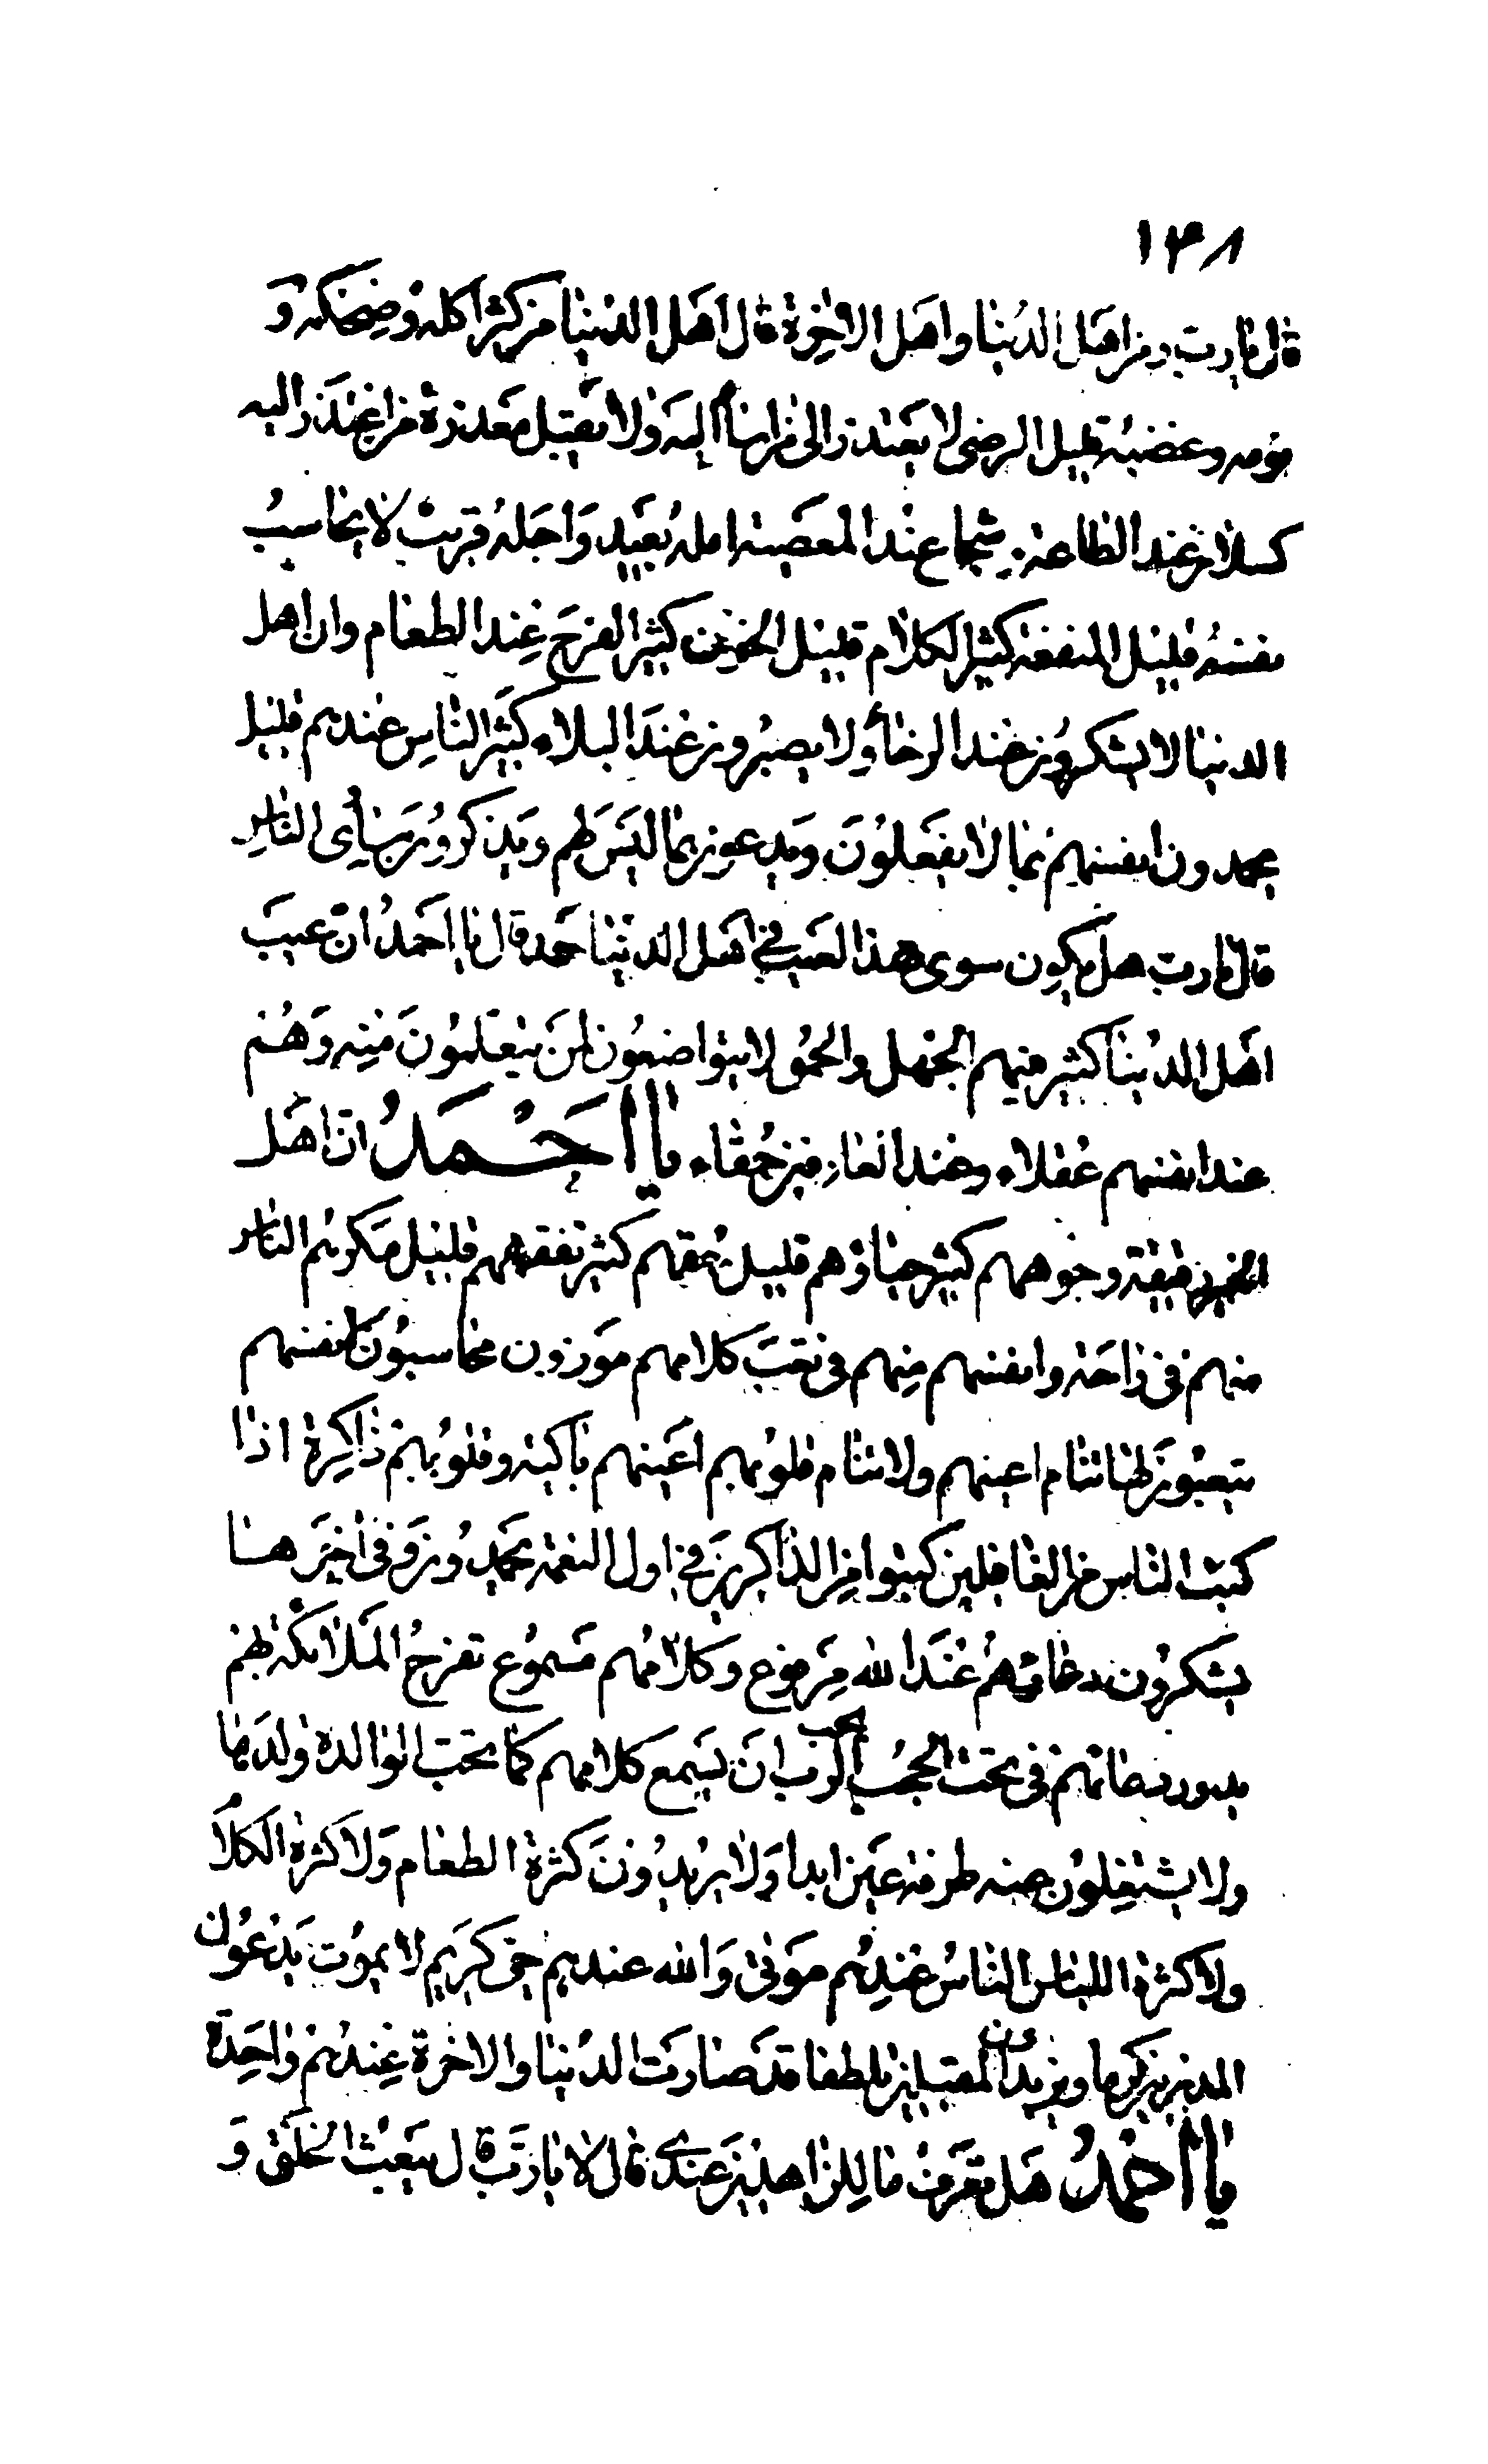 ١٣٨
قال يارب ومن اهل الدنيا واهل الاخرة قال اهل الدنيا من كثر اكله وضحكه و
نومه وغضبه قليل الرضى لا يعتذر الى من اساء اليه ولا يقبل معذرة من اعتذر اليه
كسلان عند الطاعة شجاع عند المعصية امله بعيد واجله قريب لا يحاسب
نفسه قليل المنفعة كثير الكلام قليل الخوف كثير الفرح عند الطعام وان اهل
الدنيا لا يشكرون عند الرخاء ولا يصبرون عند البلاء كثير الناس عندهم قليل
يحمدون انفسهم بما لا يفعلون ويدعون بما ليس لهم ويذكرون مساوى الناس
قال يارب هل يكون سوى هذا العيب في اهل الدنيا قال يا احمد ان عيب
اهل الدنيا كثير فيهم الجهل والحمق لا يتواضعون لمن يتعلمون منه وهم
عند انفسهم عقلاء وعند العارفين حمقاء يا احمد ان اهل
الخير رقيقة وجوههم كثير حياؤهم قليل حمقهم كثير نفعهم قليل مكرهم الناس
منهم في راحة وانفسهم منهم في تعب كلامهم موزون محاسبون لانفسهم
متعبون لها تنام اعينهم ولا تنام قلوبهم اعينهم باكية وقلوبهم ذاكرة اذا
كتب الناس من الغافلين كتبوا من الذاكرين في اول النعمة يحمدون وفي اخرها
يشكرون دعاؤهم عند الله مرفوع وكلامهم مسموع تفرح الملائكة بهم
يدور دعائهم في تحت الحجب يحب الرب ان يسمع كلامهم كما تحب الوالدة ولدها
ولا يشتغلون عنه طرفة عين ابدا ولا يريدون كثرة الطعام ولا كثرة الكلام
ولا كثرة اللباس الناس عندهم موتى والله عندهم حي كريم لا يموت يدعون
المدبرين كرما ويريدون المقبلين تلطفا قد صارت الدنيا والاخرة عندهم واحدة
يا احمد هل تعرف ما للزاهدين عندي قال لا يا رب قال يبعث الخلق و